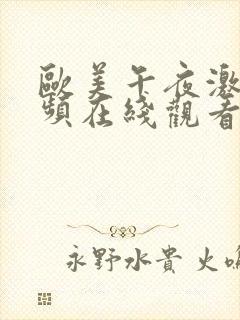 歐美午夜激
頻在綫觀看
永野水貴 火鳴